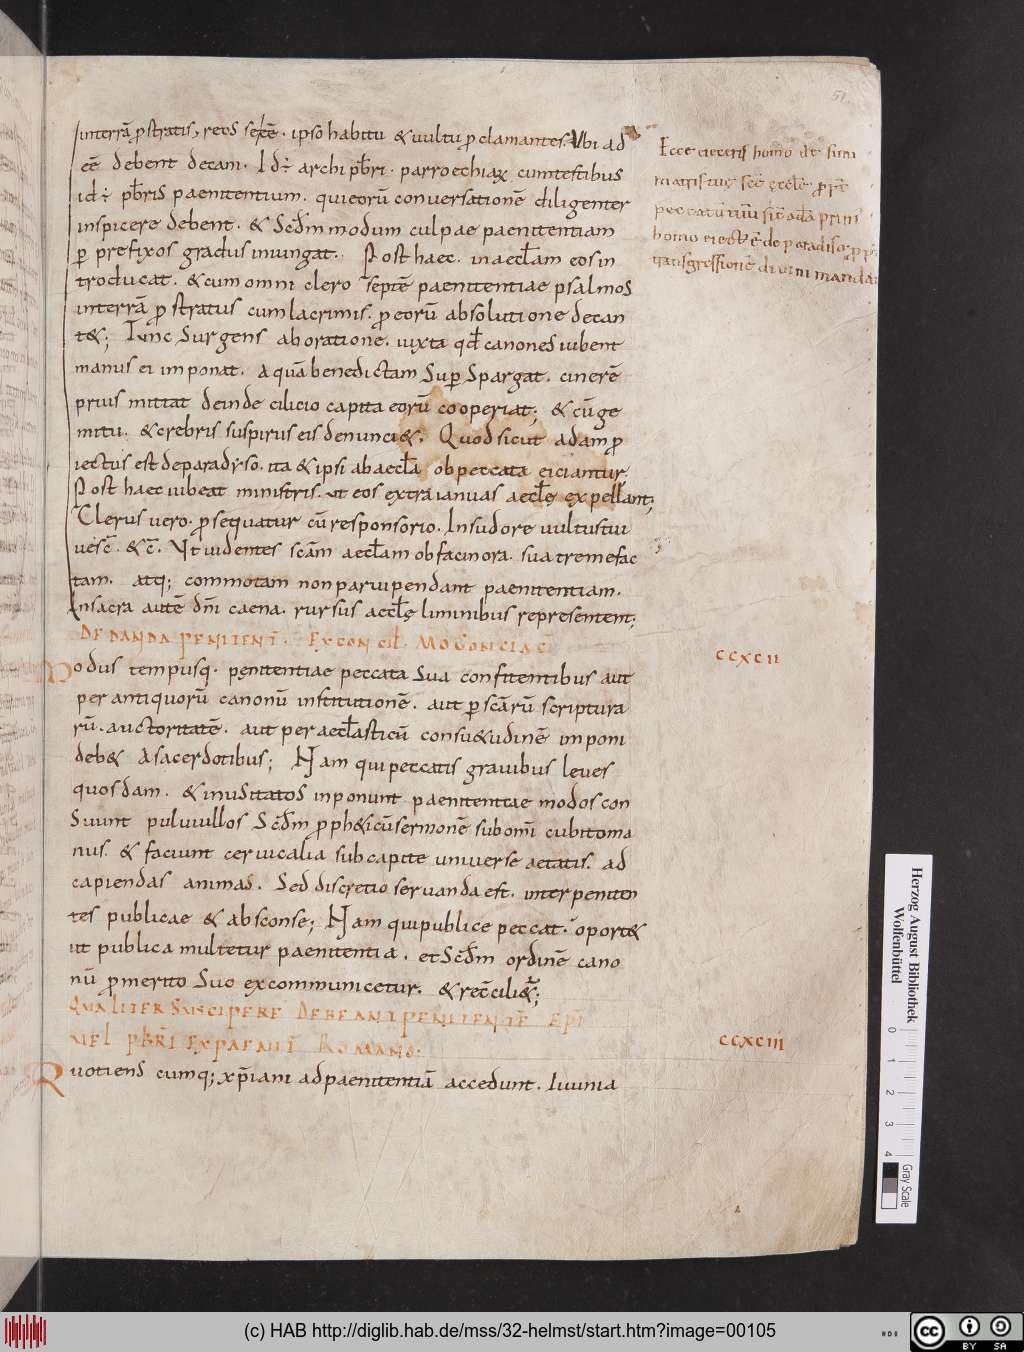 51
interrã ꝓstratis, reos seẽẽ. ipso habitu &uultu ꝓclamantes. Vbi ad
eẽ debent decani. Id÷ archi pƀri. parroechiaꝝ cum testibus
id÷ pƀris paenitentium. qui eorũ conuersationẽ diligenter
inspicere debent. & Scđm modum culpae paenitentiam
ꝑ prefixos gradus iniungat. Post haec. in aecƚam eos in
troducat. &cum omni clero septẽ paenitentiae psalmos
interrã ꝓstratus cum lacrimis. ꝓ eorũ absolutione decan
t&; Tunc Surgens ab oratione. iuxta qđ canones iubent
manus ei imponat. Aquã benedictam Suꝑ Spargat. cinerẽ
prius mittat deinde cilicio capita eorũ cooperiat; & cũ ge
mitu. &crebris suspiriis eis denunci&. Quod sicut adam ꝓ
iectus est de paradyso. ita &ipsi ab aecƚa ob peccata eiciantur.
Post haec iubeat ministris. ut eos extra ianuas aecƚę expellant;
Clerus uero. ꝓsequatur cũ responsorio. In sudore uultus tui
uesc̃. &c̃. Vt uidentes scãm aecƚam ob facinora. sua tremefac
tam. atq; commotam non paruipendant paenitentiam.
In sacra autẽ dñi caena. rursus aecƚę liminibus representent;
DE DANDA PENITENT̃. EX CONCIƚ. MOGONCIAC̃
CCXCII
Modus tempusq. penitentiae peccata Sua confitentibus aut
per antiquorũ canonũ institutionẽ. aut ꝑ scãrũ scriptura
rũ. auctoritatẽ. aut per aecƚasticũ consu&udinẽ imponi
deb& Asacerdotibus; Nam qui peccatis grauibus leues
quosdam. &inusitatos inponunt paenitentiae modos con
Suunt puluillos Scđm ꝓph&icũ sermonẽ sub omĩ cubito ma
nus. & faciunt ceruicalia sub capite uniuerse aetatis. ad
capiendas animas. Sed discretio seruanda est. inter peniten
tes publicae & absconse; Nam qui publice peccat. oport&
ut publica multetur paenitentia. et Scđm ordinẽ cano
nũ ꝓ merito Suo excommunicetur. & rec̃cili&̃;
QVALITER SVSCIPERE DEBEANT PENITENTẼ EPĨ
VEL PƀRĨ EX PAENIT̃ ROMANO:
CCXCIII
Quotiens cumq; xp̃iani ad paenitentiã accedunt. Iuunia
Ecce eieceris homo de sinu
matris tuę scẽ ęccƚe ꝓpt̃
peccatũ tuũ sic̃ adã primꝰ
homo eiectꝰ ẽ de paradiso ꝓpt̃
transgressionẽ diuini manda
Herzog August Bibliothek
Wolfenbüttel
0 1 2 3 4
Gray Scale
(c) HAB http://diglib.hab.de/mss/32-helmst/start.htm?image=00105
HAB
cc BY SA